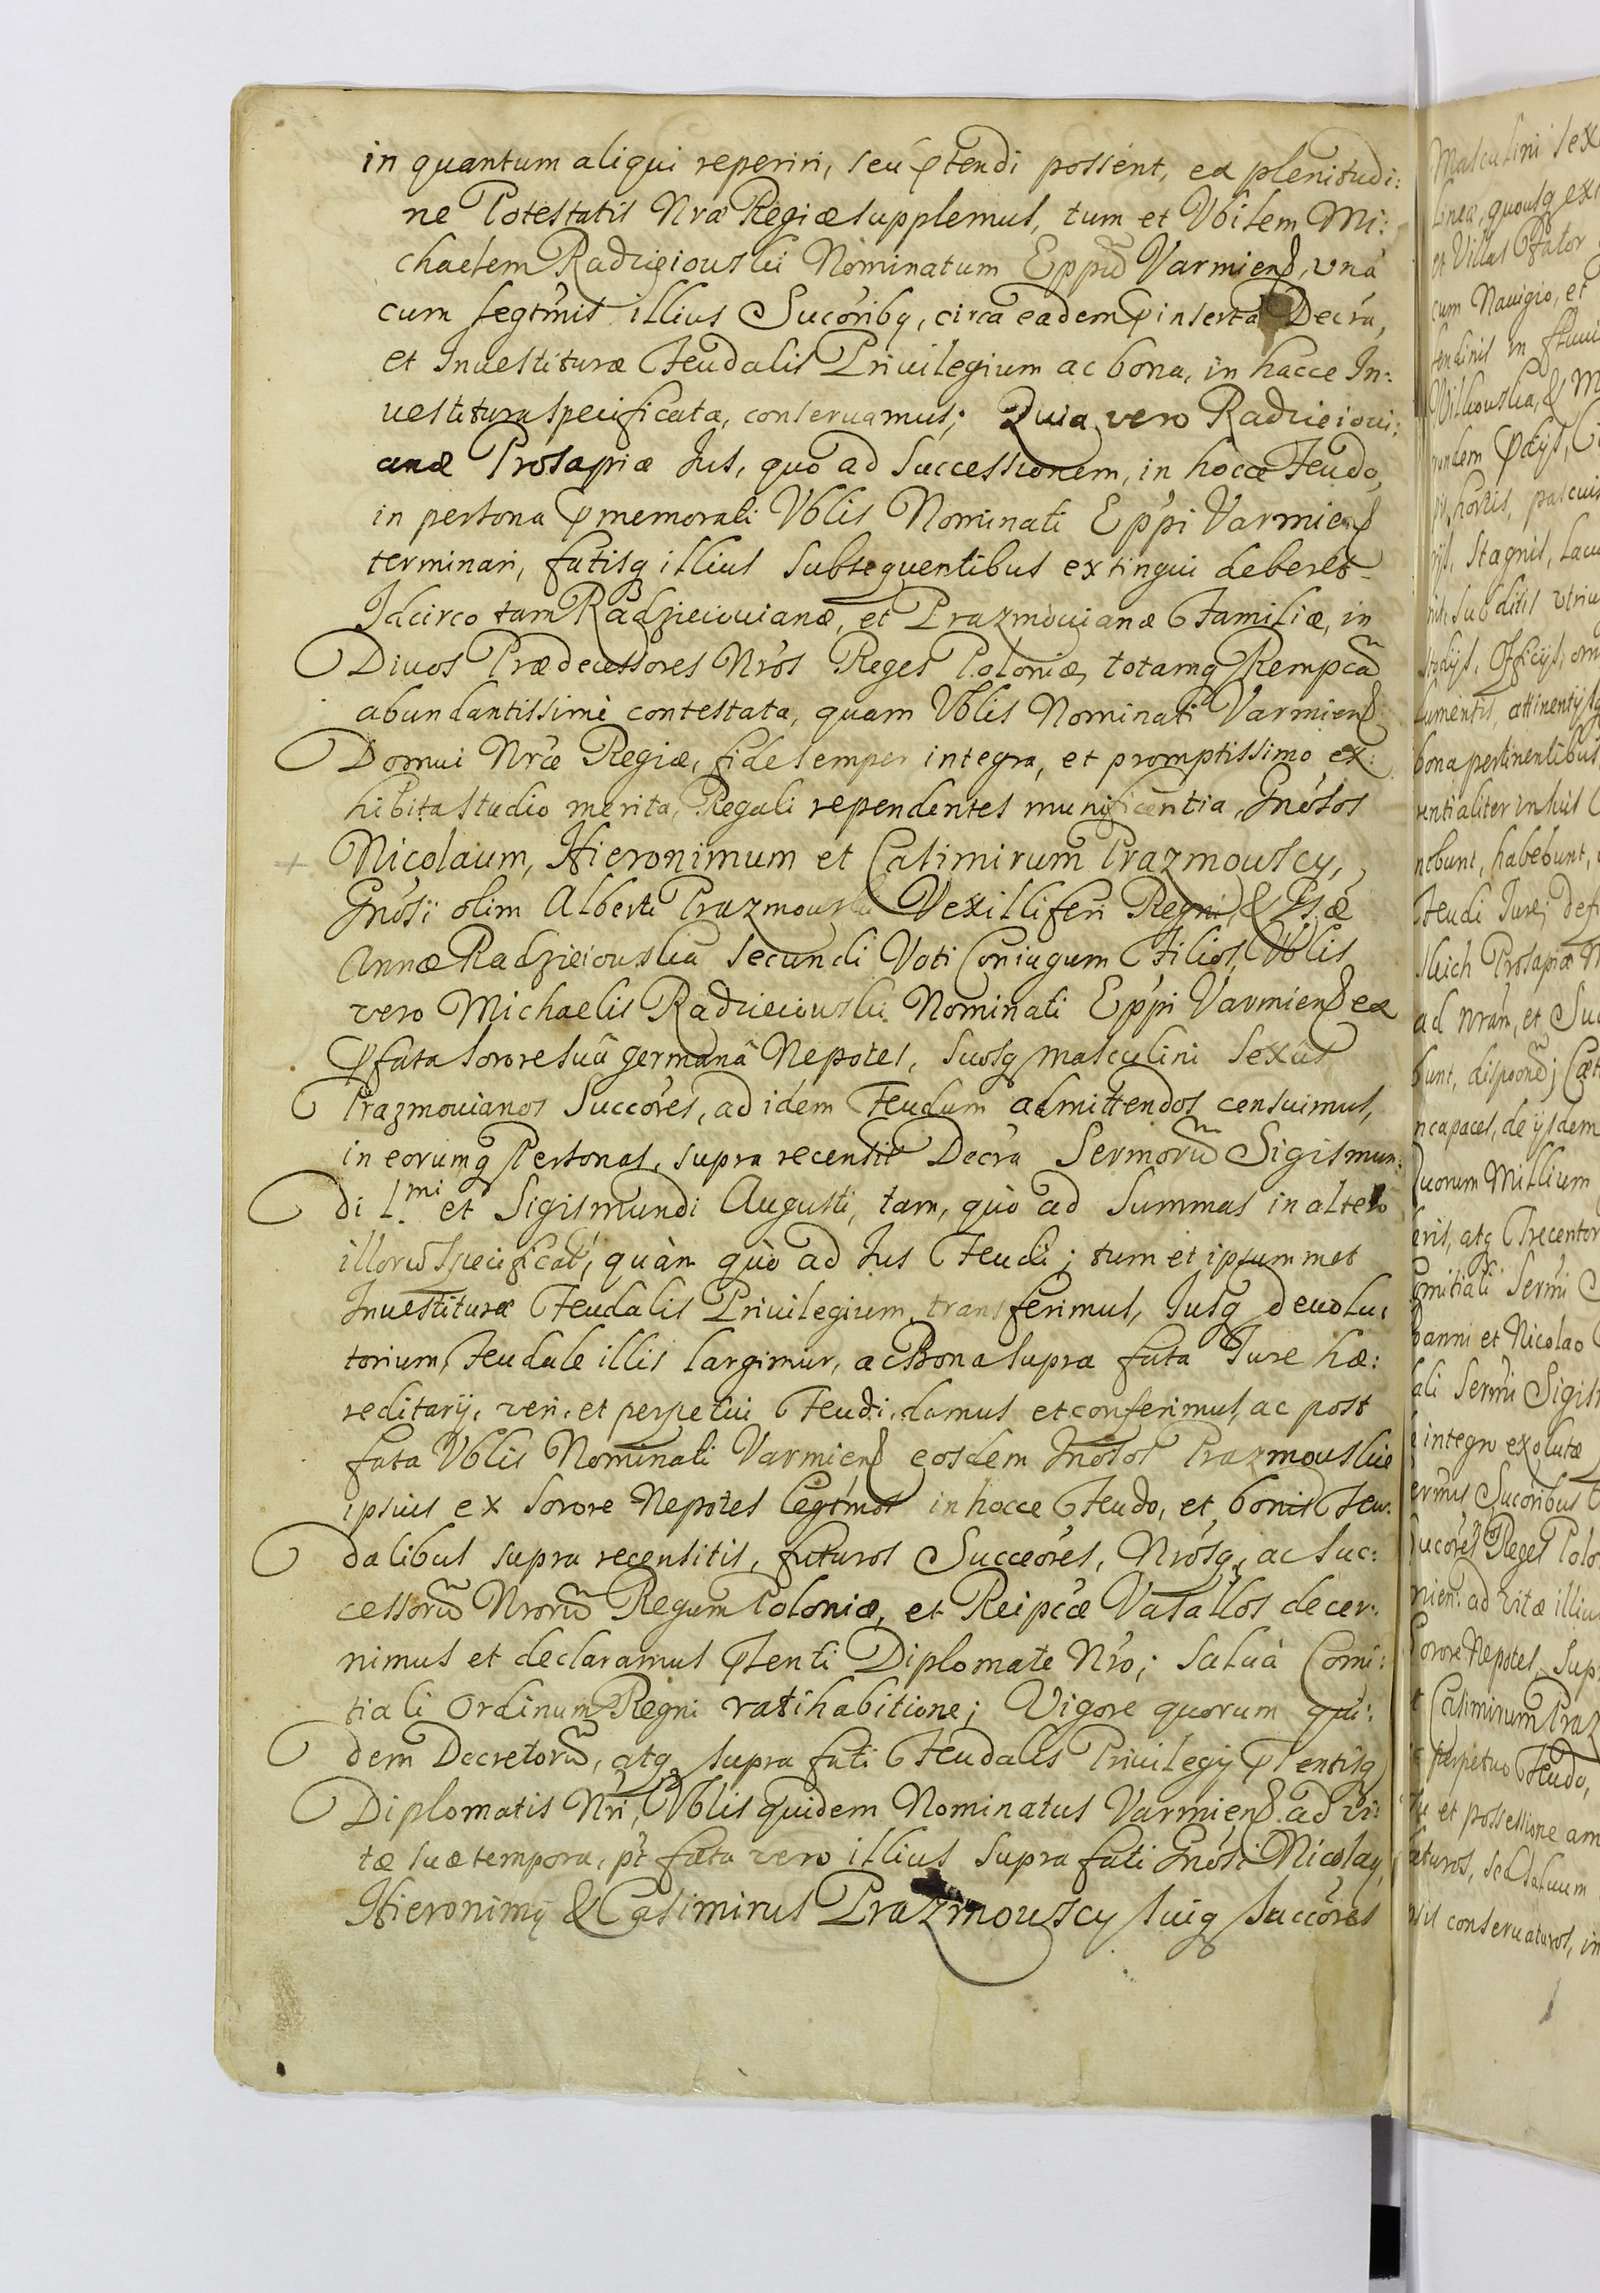 in quantum aliqui reperiri, seu ptendi possent, ex plenitudi:
ne Potestatis Nræ Regiæ supplemus, tum et Vblem Mi:
chaelem Radzieiouski Nominatum Eppũ Varmiens, vná
cum legtmis illius Sucoribq, circa eadem pinserta Decra,
et Inuestituræ Feudalis Priuilegium ac bona, in hacce In:
uestitura specificata, conseruamus; Quia vero Radzieioui:
anæ Prosapiæ Jus, quo ad Successionem, in hocce Feudo,
in persona pmemorati Vblis Nominati Eppi Varmiens
terminari, fatisq illius subsequentibus extingui deberet
Idcirco tam Radzieiouianæ, et Prazmouianæ Familiæ, in
Diuos Prædecessores Nros Reges Poloniæ, totamq Rempcã
abundantissimè contestata, quam Vblis Nominati Varmiens
Domui Nræ Regiæ, fide semper integra, et promptissimo ex:
hibita studio merita, Regali rependentes munificentia, Gnosos
Nicolaum, Hieronimum et Casimirum Prazmouscy,
Gnosi olim Alberti Prazmouski Vexilliferi Regni, &
Annæ Radzieiouska secundi Voti Coniugum Filios, Vblis
vero Michaelis Radzieiouski Nominati Eppi Varmiens ex
pfata sorore suâ germanâ Nepotes, suosq masculini sexus
Prazmouianos Succores, ad idem Feudum admittendos censuimus,
in eorumq Personas, supra recensit Decra Sermorũ Sigismun:
di I.mi et Sigismundi Augusti, tam, quò ad summas in altero
illorũ specificat, quàm quò ad Jus Feudi; tum et ipsummet
Inuestituræ Feudalis Priuilegium transferimus, Jusq deuolu:
torium, Feudale illis largimur, ac Bona supra fata Jure hæ:
reditarij, veri, et perpetui Feudi, damus et conferimus, ac post
fata Vblis Nominati Varmiens eosdem Gnosos Prazmouskie
ipsius ex sorore Nepotes legtmos in hocce Feudo, et bonis Feu:
dalibus supra recensitis, futuros Succeores, Nrosq, ac suc:
cessorũ Nrorũ Regum Poloniæ, et Reipcæ Vasallos decer:
nimus et declaramus psenti Diplomate Nro; saluà Comi:
tiali Ordinum Regni ratihabitione; Vigore quorum qui:
dem Decretorũ, atq supra fati Feudalis Priuilegij psentisq
Diplomatis Nri, Vblis quidem Nominatus Varmiens ad vi:
tæ suæ tempora, pt fata vero illius supra fati Gnosi Nicolay,
Hieronimy & Casimirus Prazmouscy suiq succores
Masculini sex
lineæ, quousq ex
et Villas
cum Nauigio, et
in
hortis, pascuis
Stagnis,
subditis
Officijs,
attinentijsq
bona pertinentibus
habebunt,
Feudi Jure;
Prosapiæ
ad nram, et
bunt,
ncapaces, de ijsdem
Quorum Millium
eris, atq Trecentor
Sermi
anni et Nicolao
ali Sermi Sigis
integro exolutæ
Sucoribus
ucores Reges Polo
ad vitæ illius
Sorore Nepotes, Sup
t Casimirum Praz
perpetuo Feudo,
et possessione am
conseruaturos, in